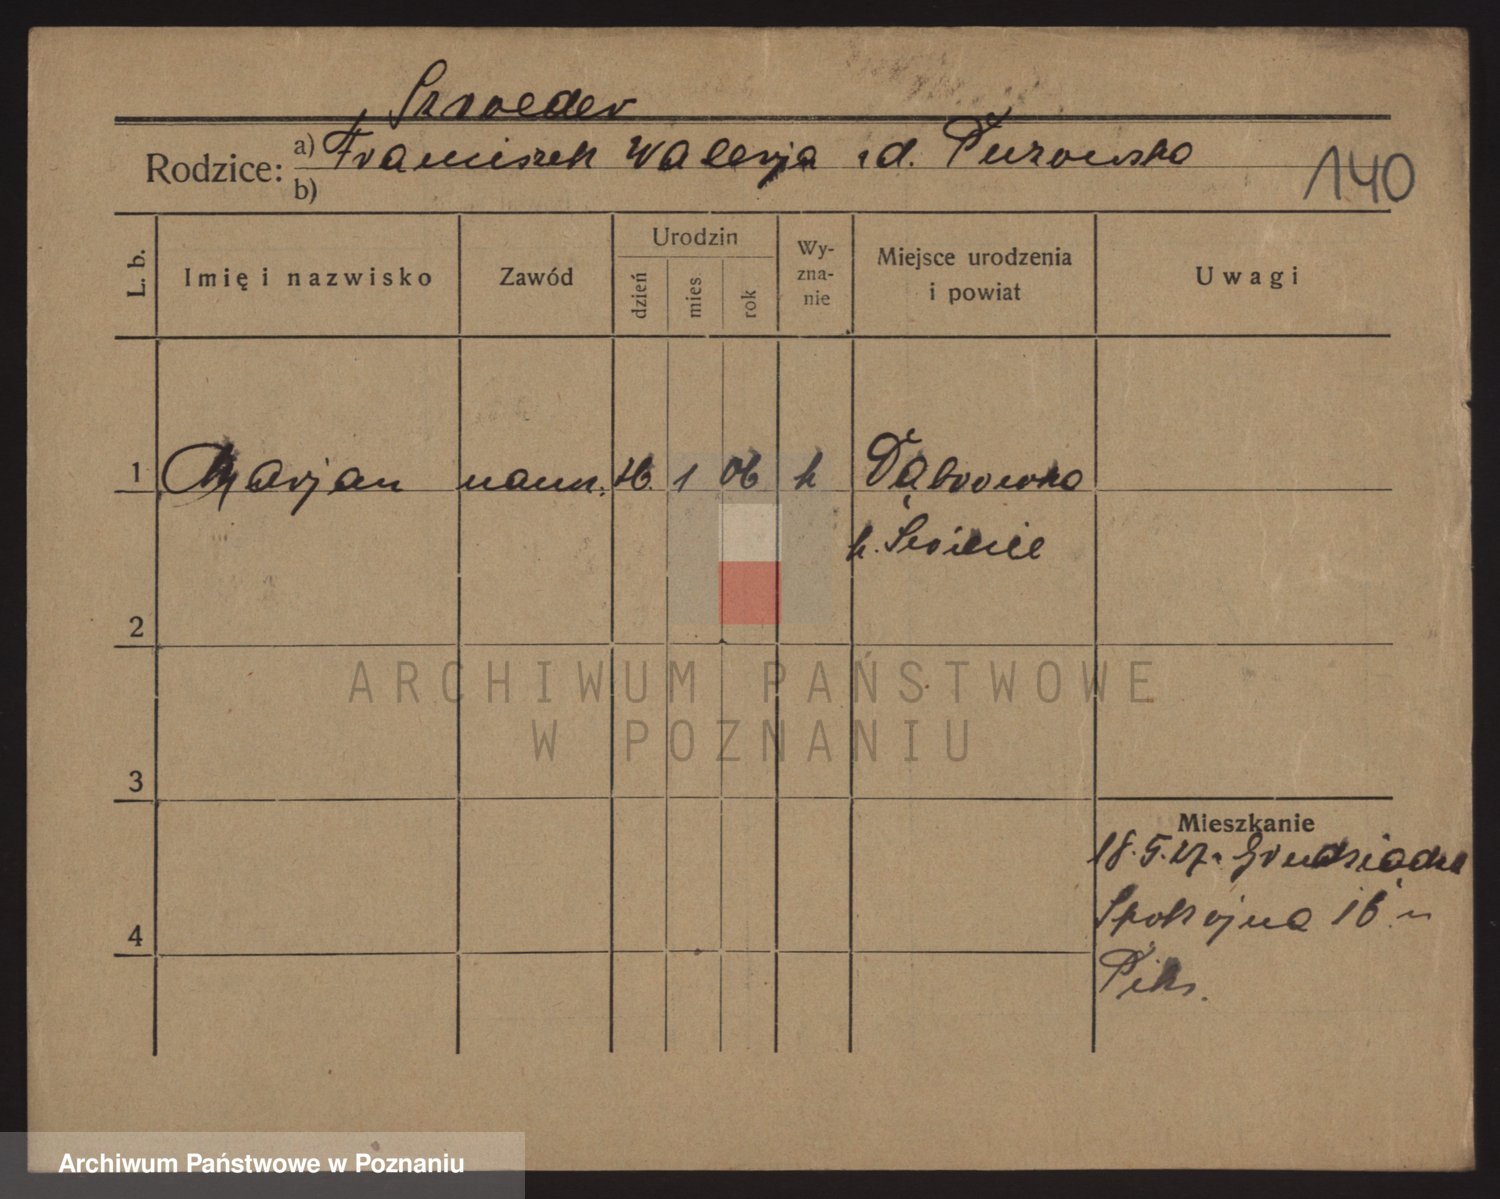 Szroeder
Rodzice: a) Franciszek Walerja z d.
b)
140
L. b.
Imię i nazwisko
Zawód
Urodzin
dzień
mies
rok
Wy-
zna-
nie
Miejsce urodzenia
i powiat
Uwagi
1 Marjan naucz. 1 06 k Dąbrówka
2
3
4
Mieszkanie
18.5.27. Grudziądza
Spokojna 16
ARCHIWUM PAŃSTWOWE
W POZNANIU
Archiwum Państwowe w Poznaniu